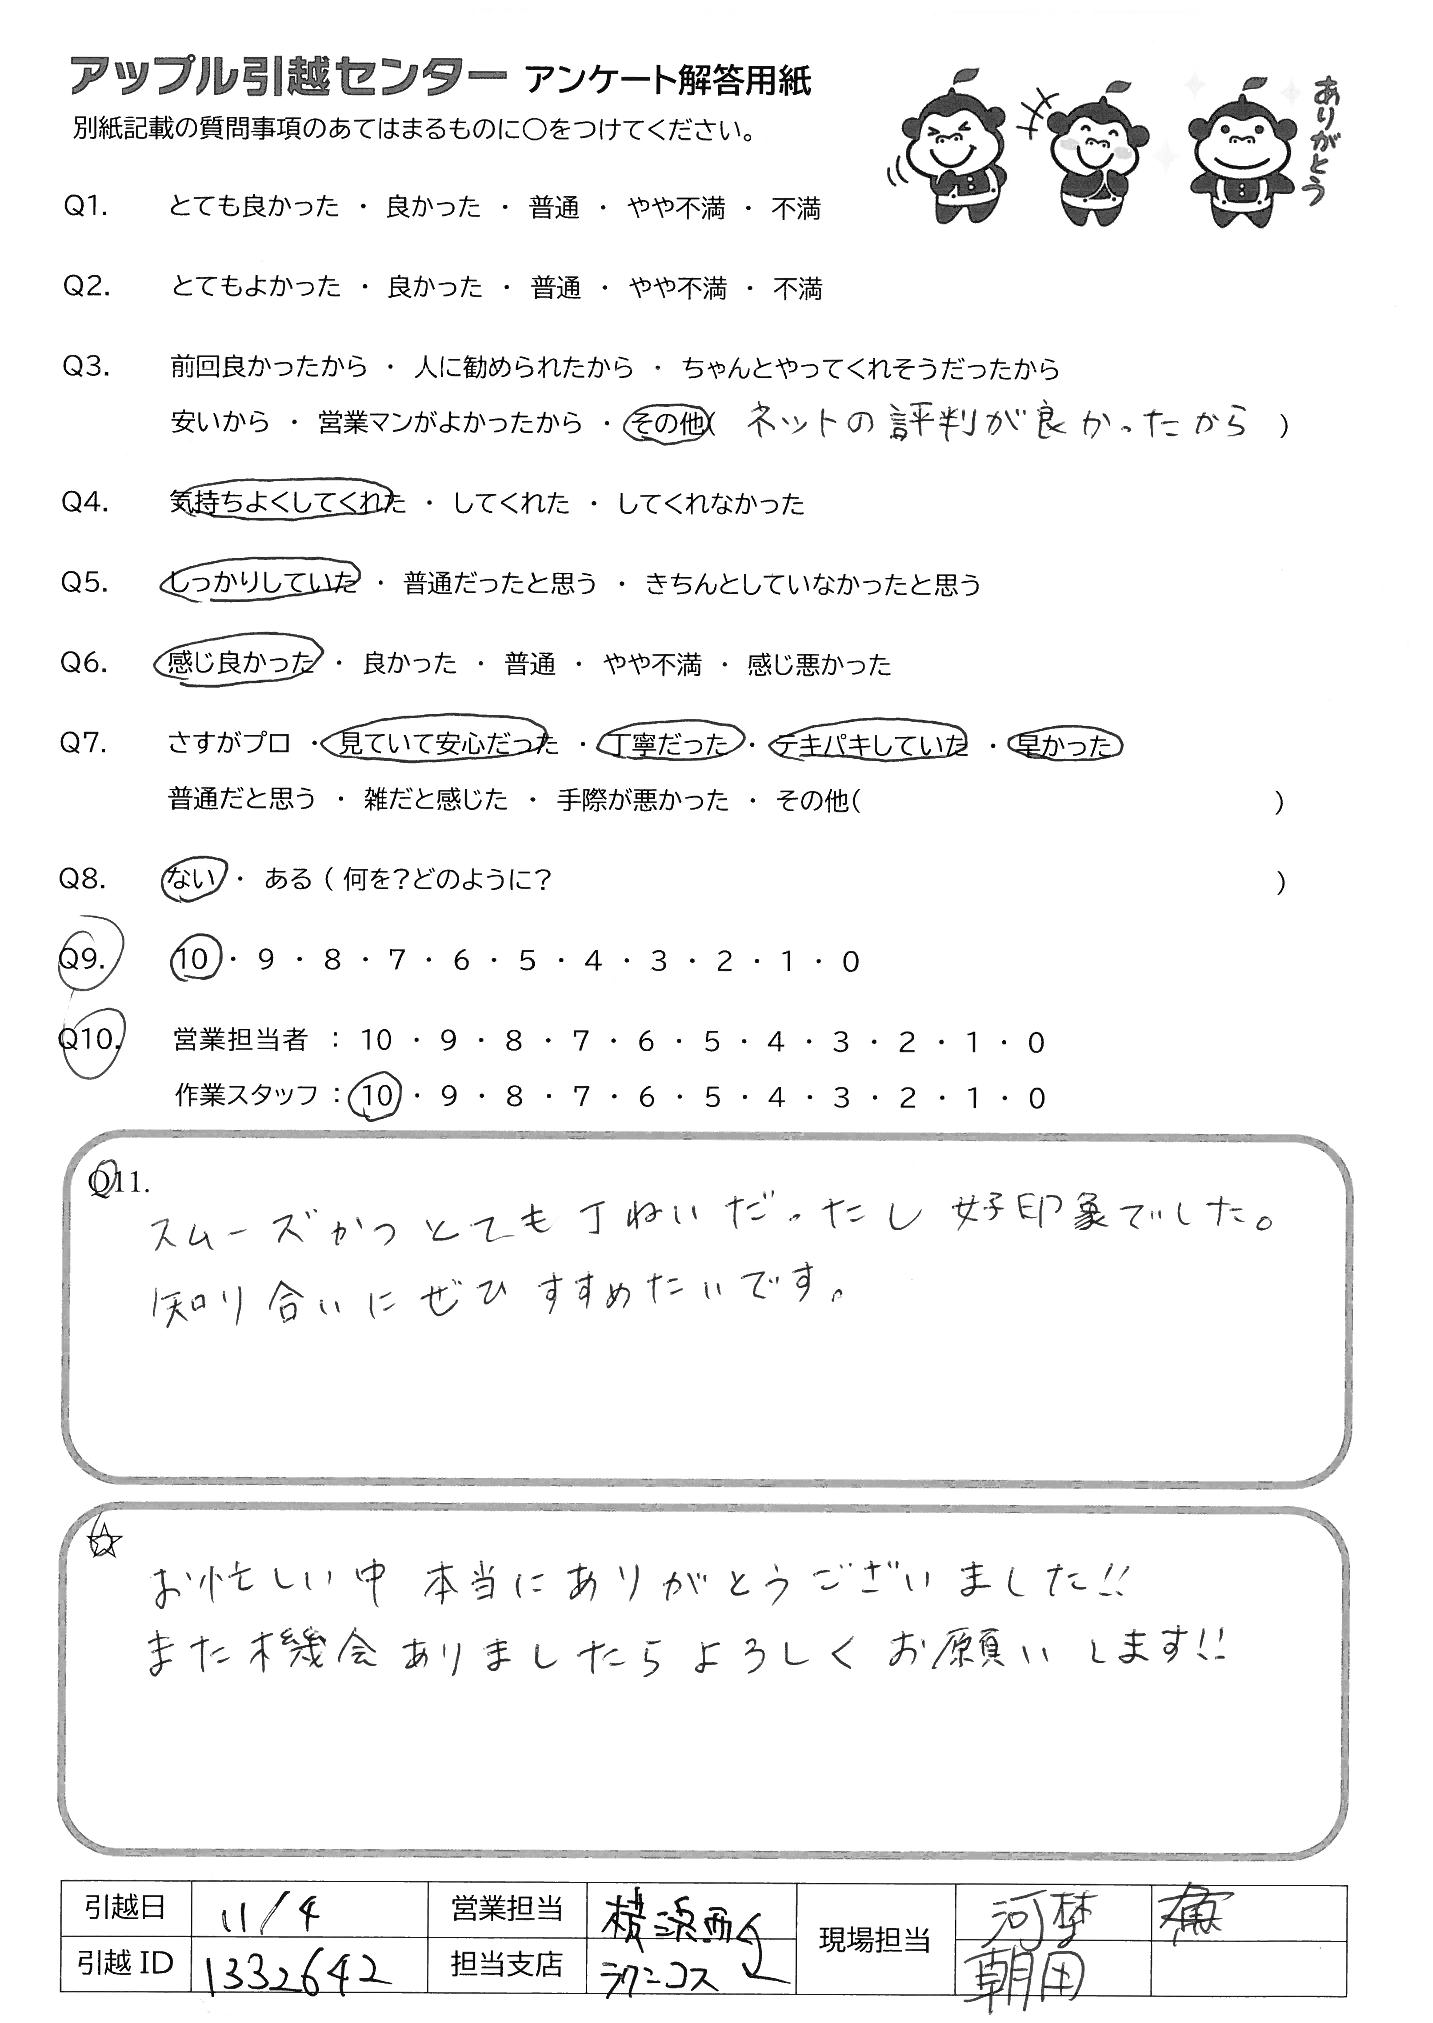 アップル引越センター アンケート解答用紙
別紙記載の質問事項のあてはまるものに○をつけてください。
ありがとう
Q1. とても良かった ・ 良かった ・ 普通 ・ やや不満 ・ 不満
Q2. とてもよかった ・ 良かった ・ 普通 ・ やや不満 ・ 不満
Q3. 前回良かったから ・ 人に勧められたから ・ ちゃんとやってくれそうだったから
安いから ・ 営業マンがよかったから ・ その他( ネットの評判が良かったから )
Q4. 気持ちよくしてくれた ・ してくれた ・ してくれなかった
Q5. しっかりしていた ・ 普通だったと思う ・ きちんとしていなかったと思う
Q6. 感じ良かった ・ 良かった ・ 普通 ・ やや不満 ・ 感じ悪かった
Q7. さすがプロ ・ 見ていて安心だった ・ 丁寧だった ・ テキパキしていた ・ 早かった
普通だと思う ・ 雑だと感じた ・ 手際が悪かった ・ その他( )
Q8. ない ・ ある ( 何を?どのように? )
Q9. 10 ・ 9 ・ 8 ・ 7 ・ 6 ・ 5 ・ 4 ・ 3 ・ 2 ・ 1 ・ 0
Q10. 営業担当者 : 10 ・ 9 ・ 8 ・ 7 ・ 6 ・ 5 ・ 4 ・ 3 ・ 2 ・ 1 ・ 0
作業スタッフ : 10 ・ 9 ・ 8 ・ 7 ・ 6 ・ 5 ・ 4 ・ 3 ・ 2 ・ 1 ・ 0
Q11.
スムーズかつとても丁ねいだったし 好印象でした。
知り合いにぜひすすめたいです。
☆
お忙しい中 本当にありがとうございました!!
また機会ありましたらよろしくお願いします!!
引越日 11/4 営業担当 横浜西 現場担当 河埜
引越ID 1332642 担当支店 ラクニコス 朝田